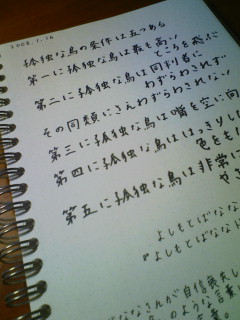 2008.1.26
孤独な鳥の条件は五つある
第一に孤独な鳥は最も高い
ところを飛ぶ
第二に孤独な鳥は同列者に
わずらわされない
その同類にさえわずらわされない
第三に孤独な鳥は嘴を空に向
第四に孤独な鳥ははっきりし
色をも
第五に孤独な鳥は非常に
やさ
よしもとばなな
『よしもとばななド
ななさんが自信喪失し
のような言葉